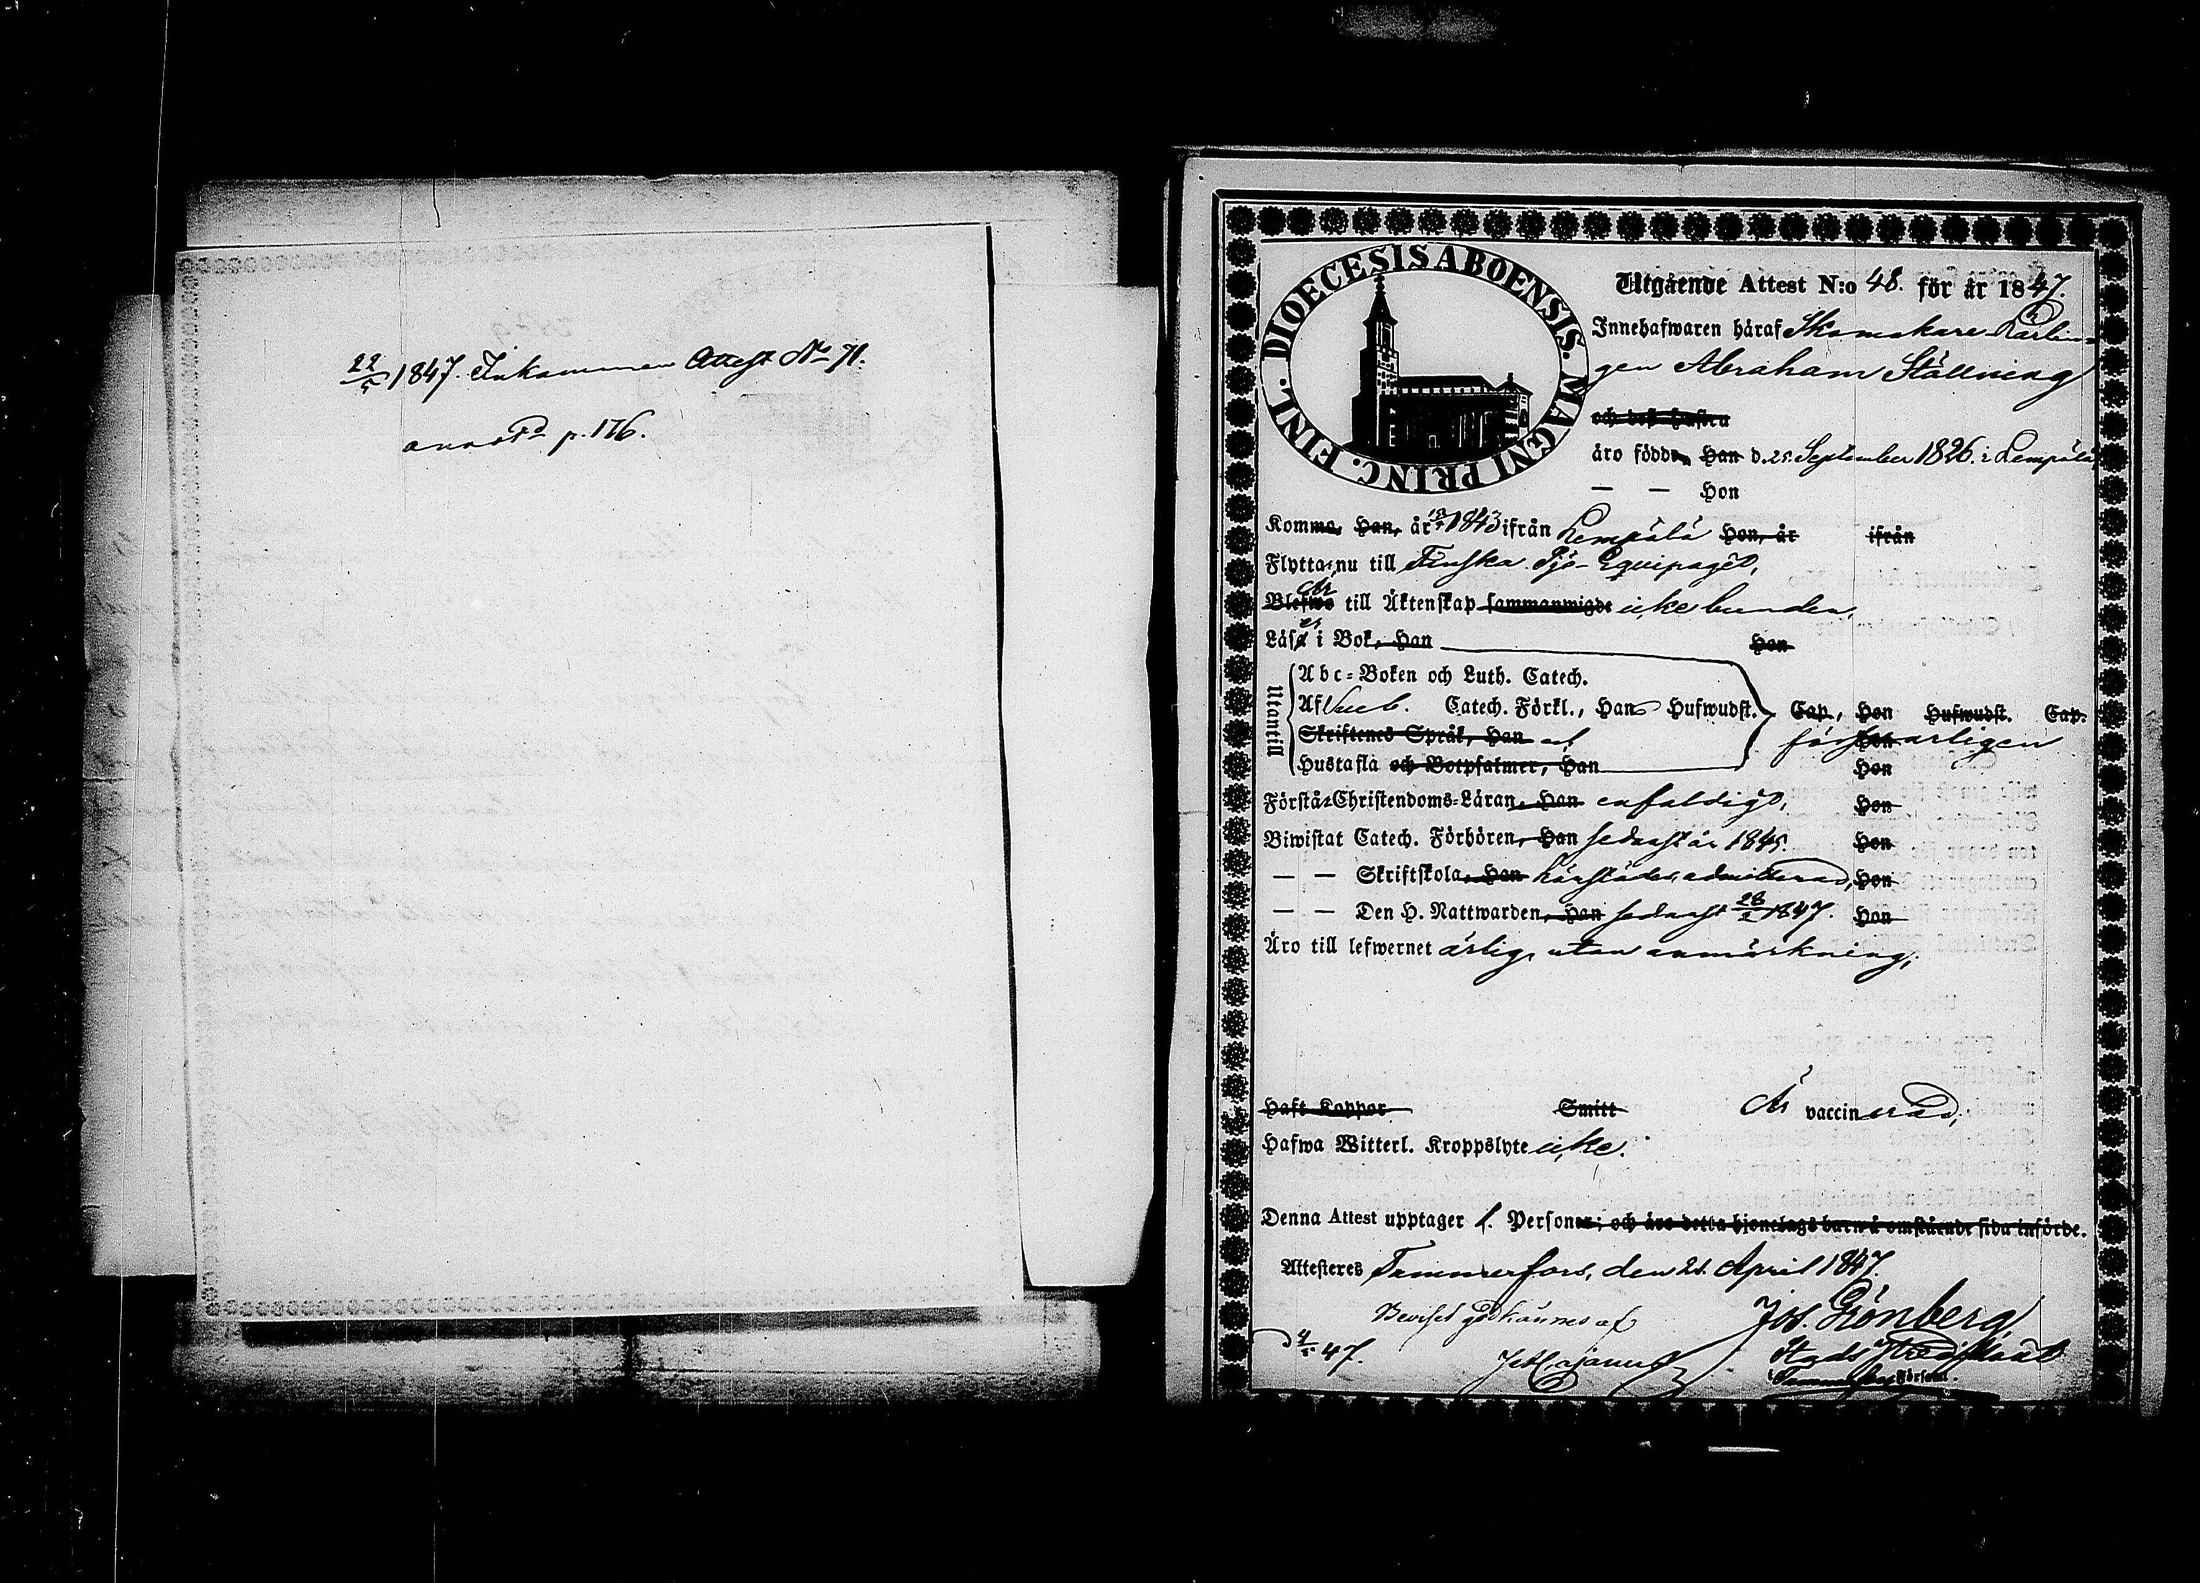 22/5 1847. Inkommen Attest No 71.
annot. p. 176.
DIOECESIS ABOENSIS. MAGNI PRINC. FINL.
Utgående Attest N:o 48. för år 1847.
Innehafwaren häraf Skomakare Lärlin-
gen Abraham Ställning
och dess hustru
äro födde, Han d. 25 September 1826. i Lempälä
— — Hon
Komma, Han, år 1843 ifrån Lempälä Hon, år ifrån
Flytta nu till Finska Sjö-Equipaget,
Är till Äktenskap sammanwigde icke bunden,
Läser i Bok, Han Hon
Utantill
Abc-Boken och Luth. Catech.
Af Sueb. Catech. Förkl., Hans Hufwudst. Cap., Hon Hufwudst. Cap.
Skriftenes Språk, Han och Hon försvarligen
Hustafla och Botpsalmer, Han Hon
Förstå Christendoms-Läran, Han enfaldigt, Hon
Biwistat Catech. Förhören, Han sednast år 1845. Hon
— — Skriftskola, Han härstädes admitterad, Hon
— — Den H. Nattwarden, Han sednast 28/2 1847. Hon
Äro till lefwernet ärlig, utan anmärkning,
Haft Koppor Smitt Är vaccinerad,
Hafwa Witterl. Kroppslyte icke.
Denna Attest upptager 1. Personer; och äro detta hjonelags barn å omstående sida införde.
Attesteres Tammerfors, den 21. April 1847.
Beviset godkännes af Jos. Grönberg
d 4/5 47.